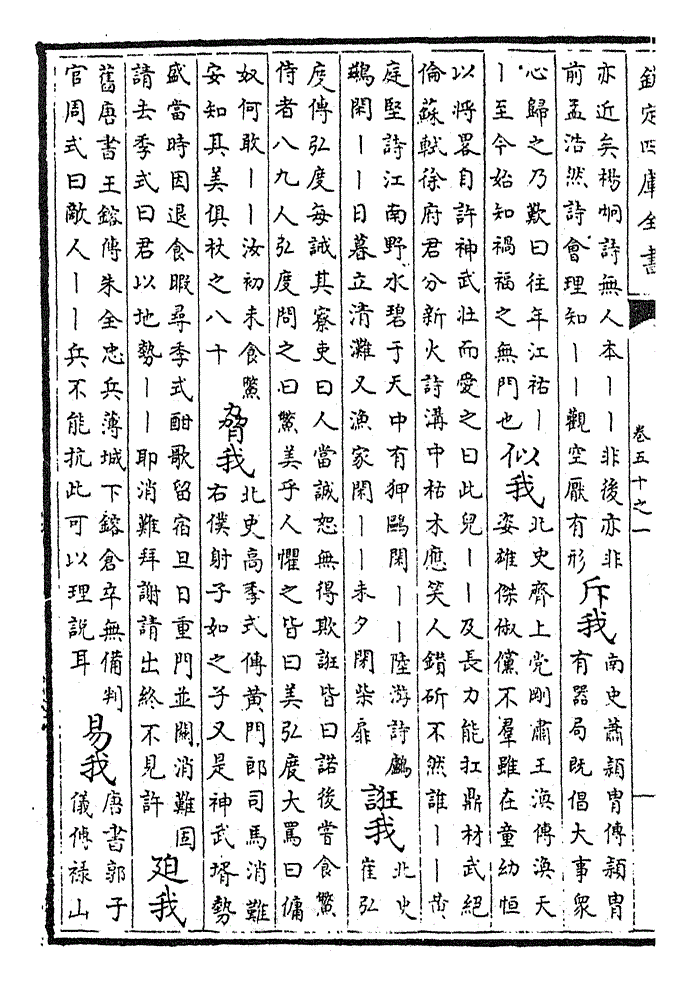 欽定四庫全書
卷五十之一
亦近矣楊炯詩無人本丨丨非後亦非
前孟浩然詩會理知丨丨觀空厭有形
斥我
南史蕭穎胄傳穎胄
有器局既倡大事衆
心歸之乃歎曰往年江祐丨
丨至今始知禍福之無門也
似我
北史齊上党剛肅王渙傳渙天
姿雄傑俶儻不羣雖在童幼恒
以將畧自許神武壯而愛之曰此兒丨丨及長力能扛鼎材武絕
倫蘇軾徐府君分新火詩溝中枯木應笑人鑚斫不然誰丨丨黄
庭堅詩江南野水碧于天中有狎鷗閑丨丨陸游詩鸕
鷀閑丨丨日暮立清灘又漁家閑丨丨未夕閉柴扉
誑我
北史
崔弘
度傳弘度每誡其寮吏曰人當誠恕無得欺誑皆曰諾後嘗食鱉
侍者八九人弘度問之曰鱉美乎人懼之皆曰美弘度大罵曰傭
奴何敢丨丨汝初未食鱉
安知其美俱杖之八十
脅我
北史高季式傳黄門郎司馬消難
右僕射子如之子又是神武壻勢
盛當時因退食暇尋季式酣歌留宿旦日重門並關消難固
請去季式曰君以地勢丨丨耶消難拜謝請出終不見許
廹我
舊唐書王鎔傳朱全忠兵薄城下鎔倉卒無備判
官周式曰敵人丨丨兵不能抗此可以理説耳
易我
唐書郭子
儀傳禄山